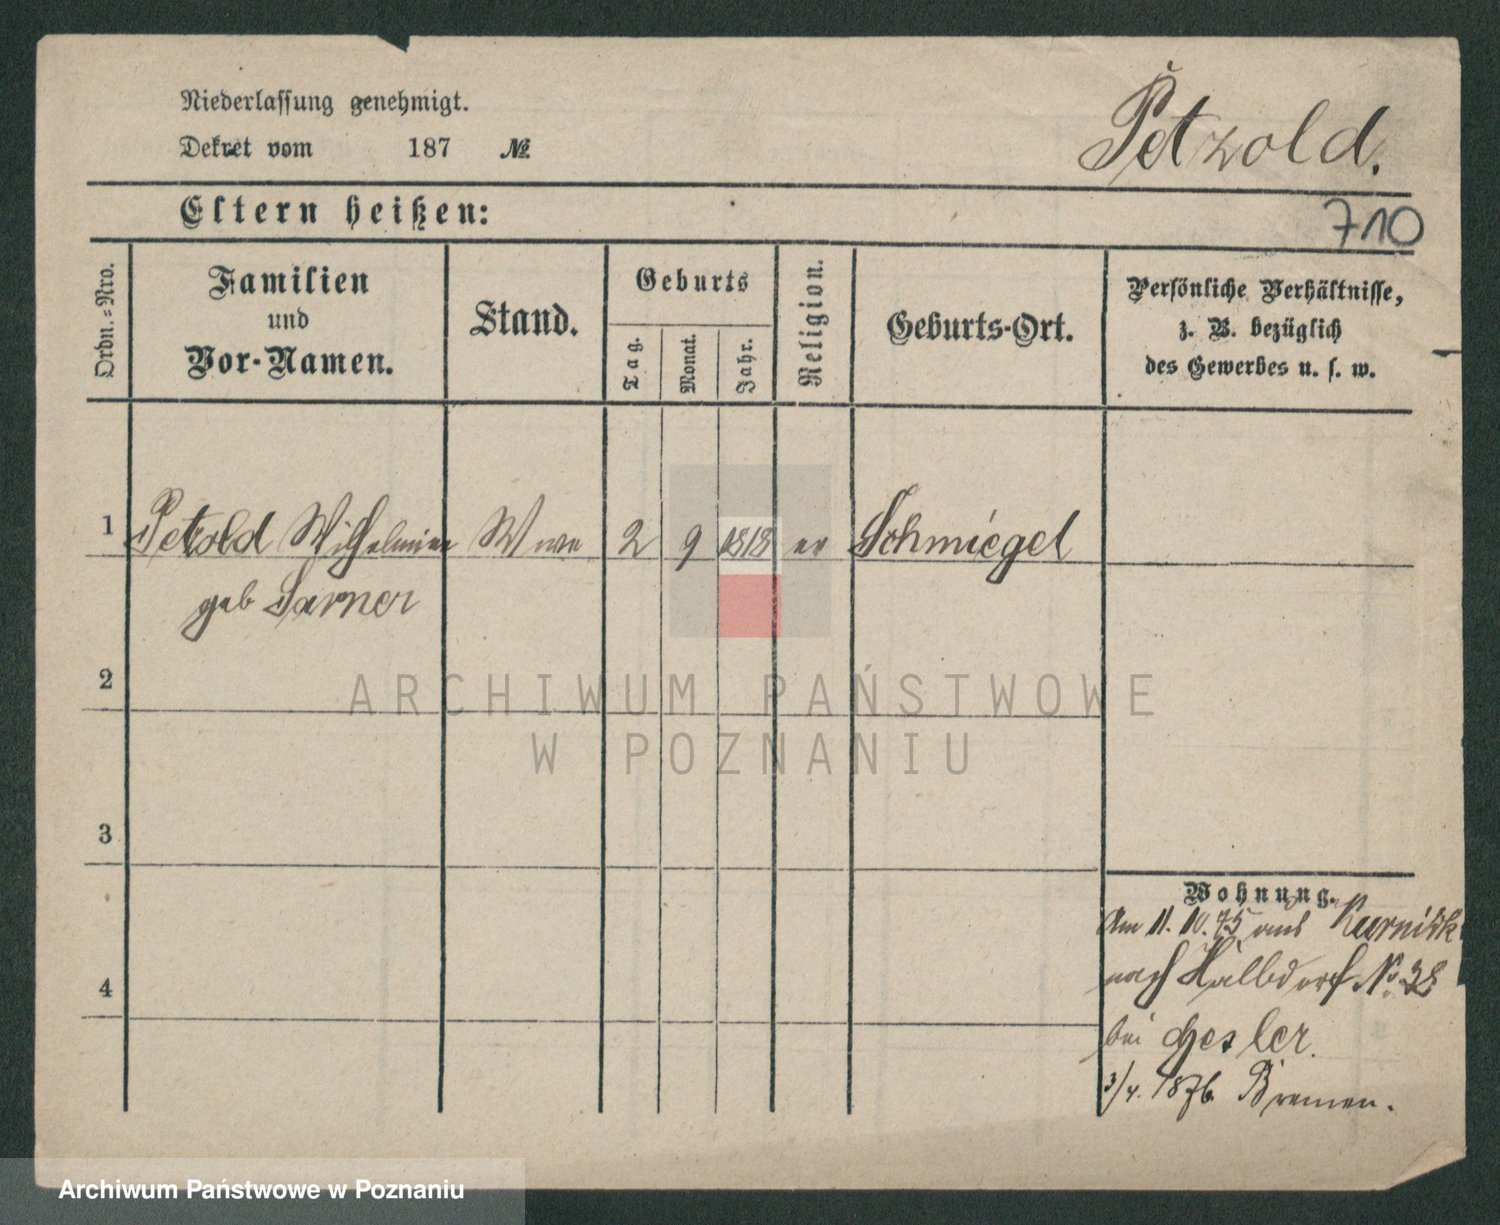 Niederlassung genehmigt.
Dekret vom 187 №
Petzold.
Eltern heißen:
710
Ordn.=Nro.
Familien
und
Vor-Namen.
Stand.
Geburts
Tag.
Monat.
Jahr.
Religion.
Geburts-Ort.
Persönliche Verhältnisse,
z. B. bezüglich
des Gewerbes u. s. w.
1 Petzold Wilhelmine Wwe 2 9 1818 ev Schmiegel
geb Sarner
2
3
4
ARCHIWUM PAŃSTWOWE
W POZNANIU
Wohnung.
Am 11. 10. 75 aus Kurnik
nach Halbdorf No. 38
bei Gesler.
3/4. 1876. Bremen.
Archiwum Państwowe w Poznaniu